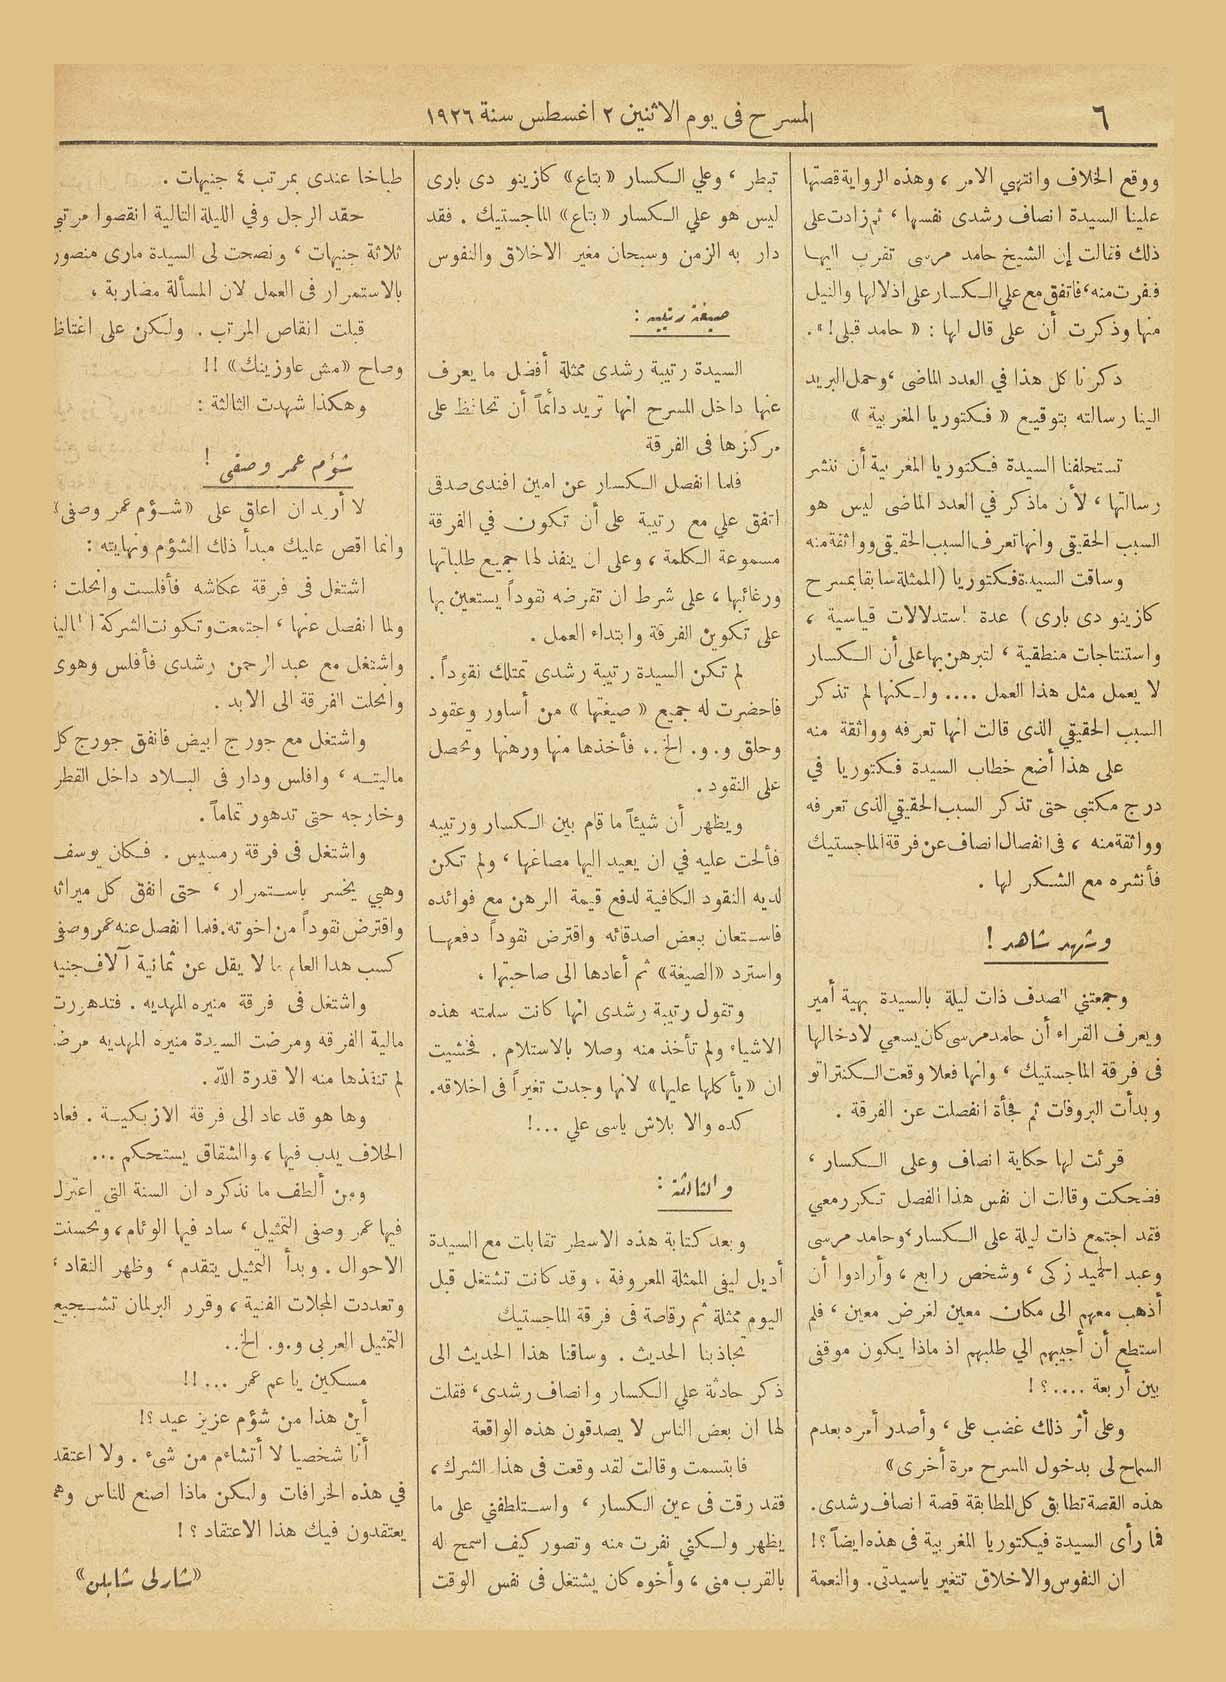 ٦
المسرح في يوم الاثنين ٢ اغسطس سنة ١٩٢٦
ووقع الخلاف وانتهي الامر ، وهذه الرواية قصتها
علينا السيدة انصاف رشدى نفسها ، ثم زادت على
ذلك فقالت إن الشيخ حامد مرسى تقرب اليها
فنفرت منه ، فاتفق مع علي الكسار على اذلالها والنيل
منها وذكرت أن على قال لها : « حامد قبلى ! » .
ذكرنا كل هذا في العدد الماضى ، وحمل البريد
الينا رسالته بتوقيع « فكتوريا المغربية »
تستحلفنا السيدة فكتوريا المغربية أن ننشر
رسالتها ، لأن ماذكر في العدد الماضى ليس هو
السبب الحقيقى وانها تعرف السبب الحقيقى وواثقة منه
وساقت السيدة فكتوريا (الممثلة سابقا بمسرح
كازينو دى بارى ) عدة استدلالات قياسية ،
واستنتاجات منطقية ، لتبرهن بها على أن الكسار
لا يعمل مثل هذا العمل .... ولكنها لم تذكر
السبب الحقيقي الذى قالت انها تعرفه وواثقة منه
على هذا أضع خطاب السيدة فكتوريا في
درج مكتبى حتى تذكر السبب الحقيقي الذى تعرفه
وواثقة منه ، فى انفصال انصاف عن فرقة الماجستيك
فأنشره مع الشكر لها .
وشهد شاهد !
وجمعتني الصدف ذات ليلة بالسيدة بهية أمير
ويعرف القراء أن حامد مرسى كان يسعي لادخالها
فى فرقة الماجستيك ، وانها فعلا وقعت الكنتراتو
وبدأت البروفات ثم فجأة انفصلت عن الفرقة .
قرئت لها حكاية انصاف وعلى الكسار ،
فضحكت وقالت ان نفس هذا الفصل تكرر معي
فقد اجتمع ذات ليلة على الكسار ، وحامد مرسى
وعبد الحميد زكى ، وشخص رابع ، وأرادوا أن
أذهب معهم الى مكان معين لغرض معين ، فلم
استطع أن أجيبهم الي طلبهم اذ ماذا يكون موقفى
بين أربعة ....؟ !
وعلى أثر ذلك غضب على ، وأصدر أمره بعدم
السماح لى بدخول المسرح مرة أخرى »
هذه القصة تطابق كل المطابقة قصة انصاف رشدى .
فما رأى السيدة فيكتوريا المغربية فى هذه ايضاً ؟!
ان النفوس والاخلاق تتغير ياسيدتى . والنعمة
تبطر ، وعلي الكسار « بتاع » كازينو دى بارى
ليس هو علي الكسار « بتاع » الماجستيك . فقد
دار به الزمن وسبحان مغير الاخلاق والنفوس
صيغة رتيبه :
السيدة رتيبة رشدى ممثلة أفضل ما يعرف
عنها داخل المسرح انها تريد دائماً أن تحافظ على
مركزها فى الفرقة
فلما انفصل الكسار عن امين افندى صدقى
اتفق علي مع رتيبة على أن تكون في الفرقة
مسموعة الكلمة ، وعلى ان ينفذ لها جميع طلباتها
ورغائبها ، على شرط ان تقرضه نقوداً يستعين بها
على تكوين الفرقة وابتداء العمل .
لم تكن السيدة رتيبة رشدى تمتلك نقوداً .
فاحضرت له جميع « صيغتها » من أساور وعقود
وحلق و . و . الخ .، فأخذها منها ورهنها وتحصل
على النقود .
ويظهر أن شيئاً ما قام بين الكسار ورتيبه
فألحت عليه في ان يعيد اليها مصاغها ، ولم تكن
لديه النقود الكافية لدفع قيمة الرهن مع فوائده
فاستعان ببعض اصدقائه واقترض نقوداً دفعها
واسترد «الصيغة» ثم أعادها الى صاحبتها ،
وتقول رتيبة رشدى انها كانت سلمته هذه
الاشياء ولم تأخذ منه وصلا بالاستلام . فخشيت
ان « يأكلها عليها » لانها وجدت تغيراً فى اخلاقه .
كده والا بلاش ياسى علي ...!
والثالثة :
وبعد كتابة هذه الاسطر تقابلت مع السيدة
أديل ليفى الممثلة المعروفة ، وقد كانت تشتغل قبل
اليوم ممثلة ثم رقاصة فى فرقة الماجستيك
تجاذبنا الحديث . وساقنا هذا الحديث الى
ذكر حادثة علي الكسار وانصاف رشدى ، فقلت
لها ان بعض الناس لا يصدقون هذه الواقعة
فابتسمت وقالت لقد وقعت فى هذا الشرك ،
فقد رقت فى عين الكسار ، واستلطفني على ما
يظهر ولكني نفرت منه وتصور كيف اسمح له
بالقرب منى ، وأخوه كان يشتغل فى نفس الوقت
طباخا عندى بمرتب ٤ جنيهات .
حقد الرجل وفي الليلة التالية انقصوا مرتبي
ثلاثة جنيهات ، ونصحت لى السيدة مارى منصور
بالاستمرار فى العمل لان المسألة مضاربة ،
قبلت انقاص المرتب . ولكن على اغتاظ
وصاح « مش عاوزينك » !!
وهكذا شهدت الثالثة :
شؤم عمر وصفى !
لا أريد ان اعلق على « شؤم عمر وصفى »
وانما اقص عليك مبدأ ذلك الشؤم ونهايته :
اشتغل فى فرقة عكاشه فأفلست وانحلت ،
ولما انفصل عنها ، اجتمعت وتكونت الشركة المالية
واشتغل مع عبد الرحمن رشدى فأفلس وهوى
وانحلت الفرقة الى الابد .
واشتغل مع جورج ابيض فانفق جورج كل
ماليته ، وافلس ودار فى البلاد داخل القطر
وخارجه حتى تدهور تماماً .
واشتغل فى فرقة رمسيس . فكان يوسف
وهبي يخسر باستمرار ، حتى انفق كل ميراثه
واقترض نقوداً من اخوته . فلما انفصل عنه عمر وصفى
كسب هذا العام ما لا يقل عن ثمانية آلاف جنيه
واشتغل فى فرقة منيره المهديه . فتدهورت
مالية الفرقه ومرضت السيدة منيره المهديه مرضا
لم تنقذها منه الا قدرة الله .
وها هو قد عاد الى فرقة الازبكية . فعاد
الخلاف يدب فيها ، والشقاق يستحكم ...
ومن ألطف ما نذكره ان السنة التي اعتزل
فيها عمر وصفى التمثيل ، ساد فيها الوئام ، وتحسنت
الاحوال . وبدأ التمثيل يتقدم ، وظهر النقاد ،
وتعددت المجلات الفنية ، وقرر البرلمان تشجيع
التمثيل العربى و . و . الخ ..
مسكين ياعم عمر ... !!
أين هذا من شؤم عزيز عيد ؟!
أنا شخصيا لا أتشاءم من شىء . ولا اعتقد
في هذه الخرافات ولكن ماذا اصنع للناس وهم
يعتقدون فيك هذا الاعتقاد ؟ !
« شارلى شابلن »